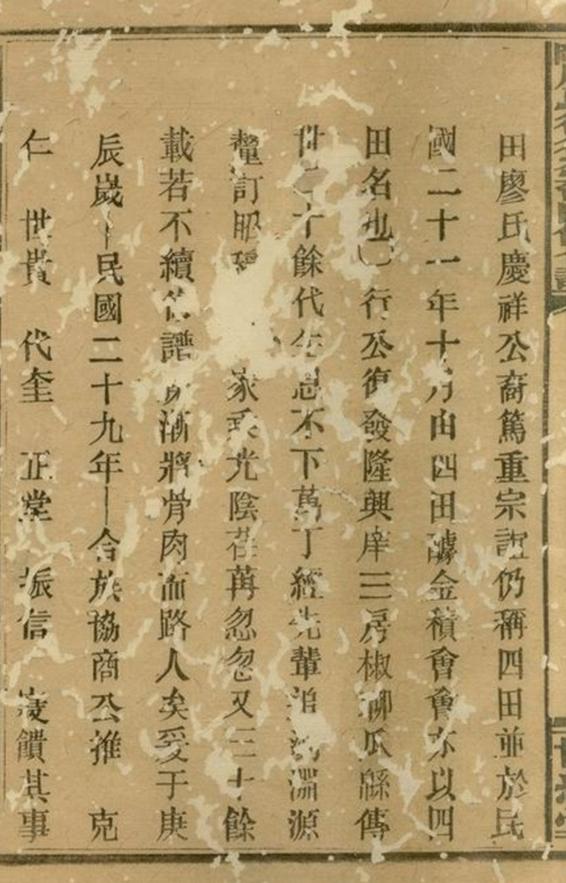 田廖氏慶祥公裔篤重宗誼仍稱四田並於民
國二十一年十月由四田醵金積會會亦以四
田名也行公復發隆興庠三房椒聊瓜緜傳
世二十餘代生息不下萬丁經先輩淵源
釐訂昭家乘光陰荏苒忽忽又三十餘
載若不續修譜漸將骨肉而路人矣爰于庚
辰歲民國二十九年合族協商公推 克
仁 世貴 代奎 正堂 振信 峻饋其事